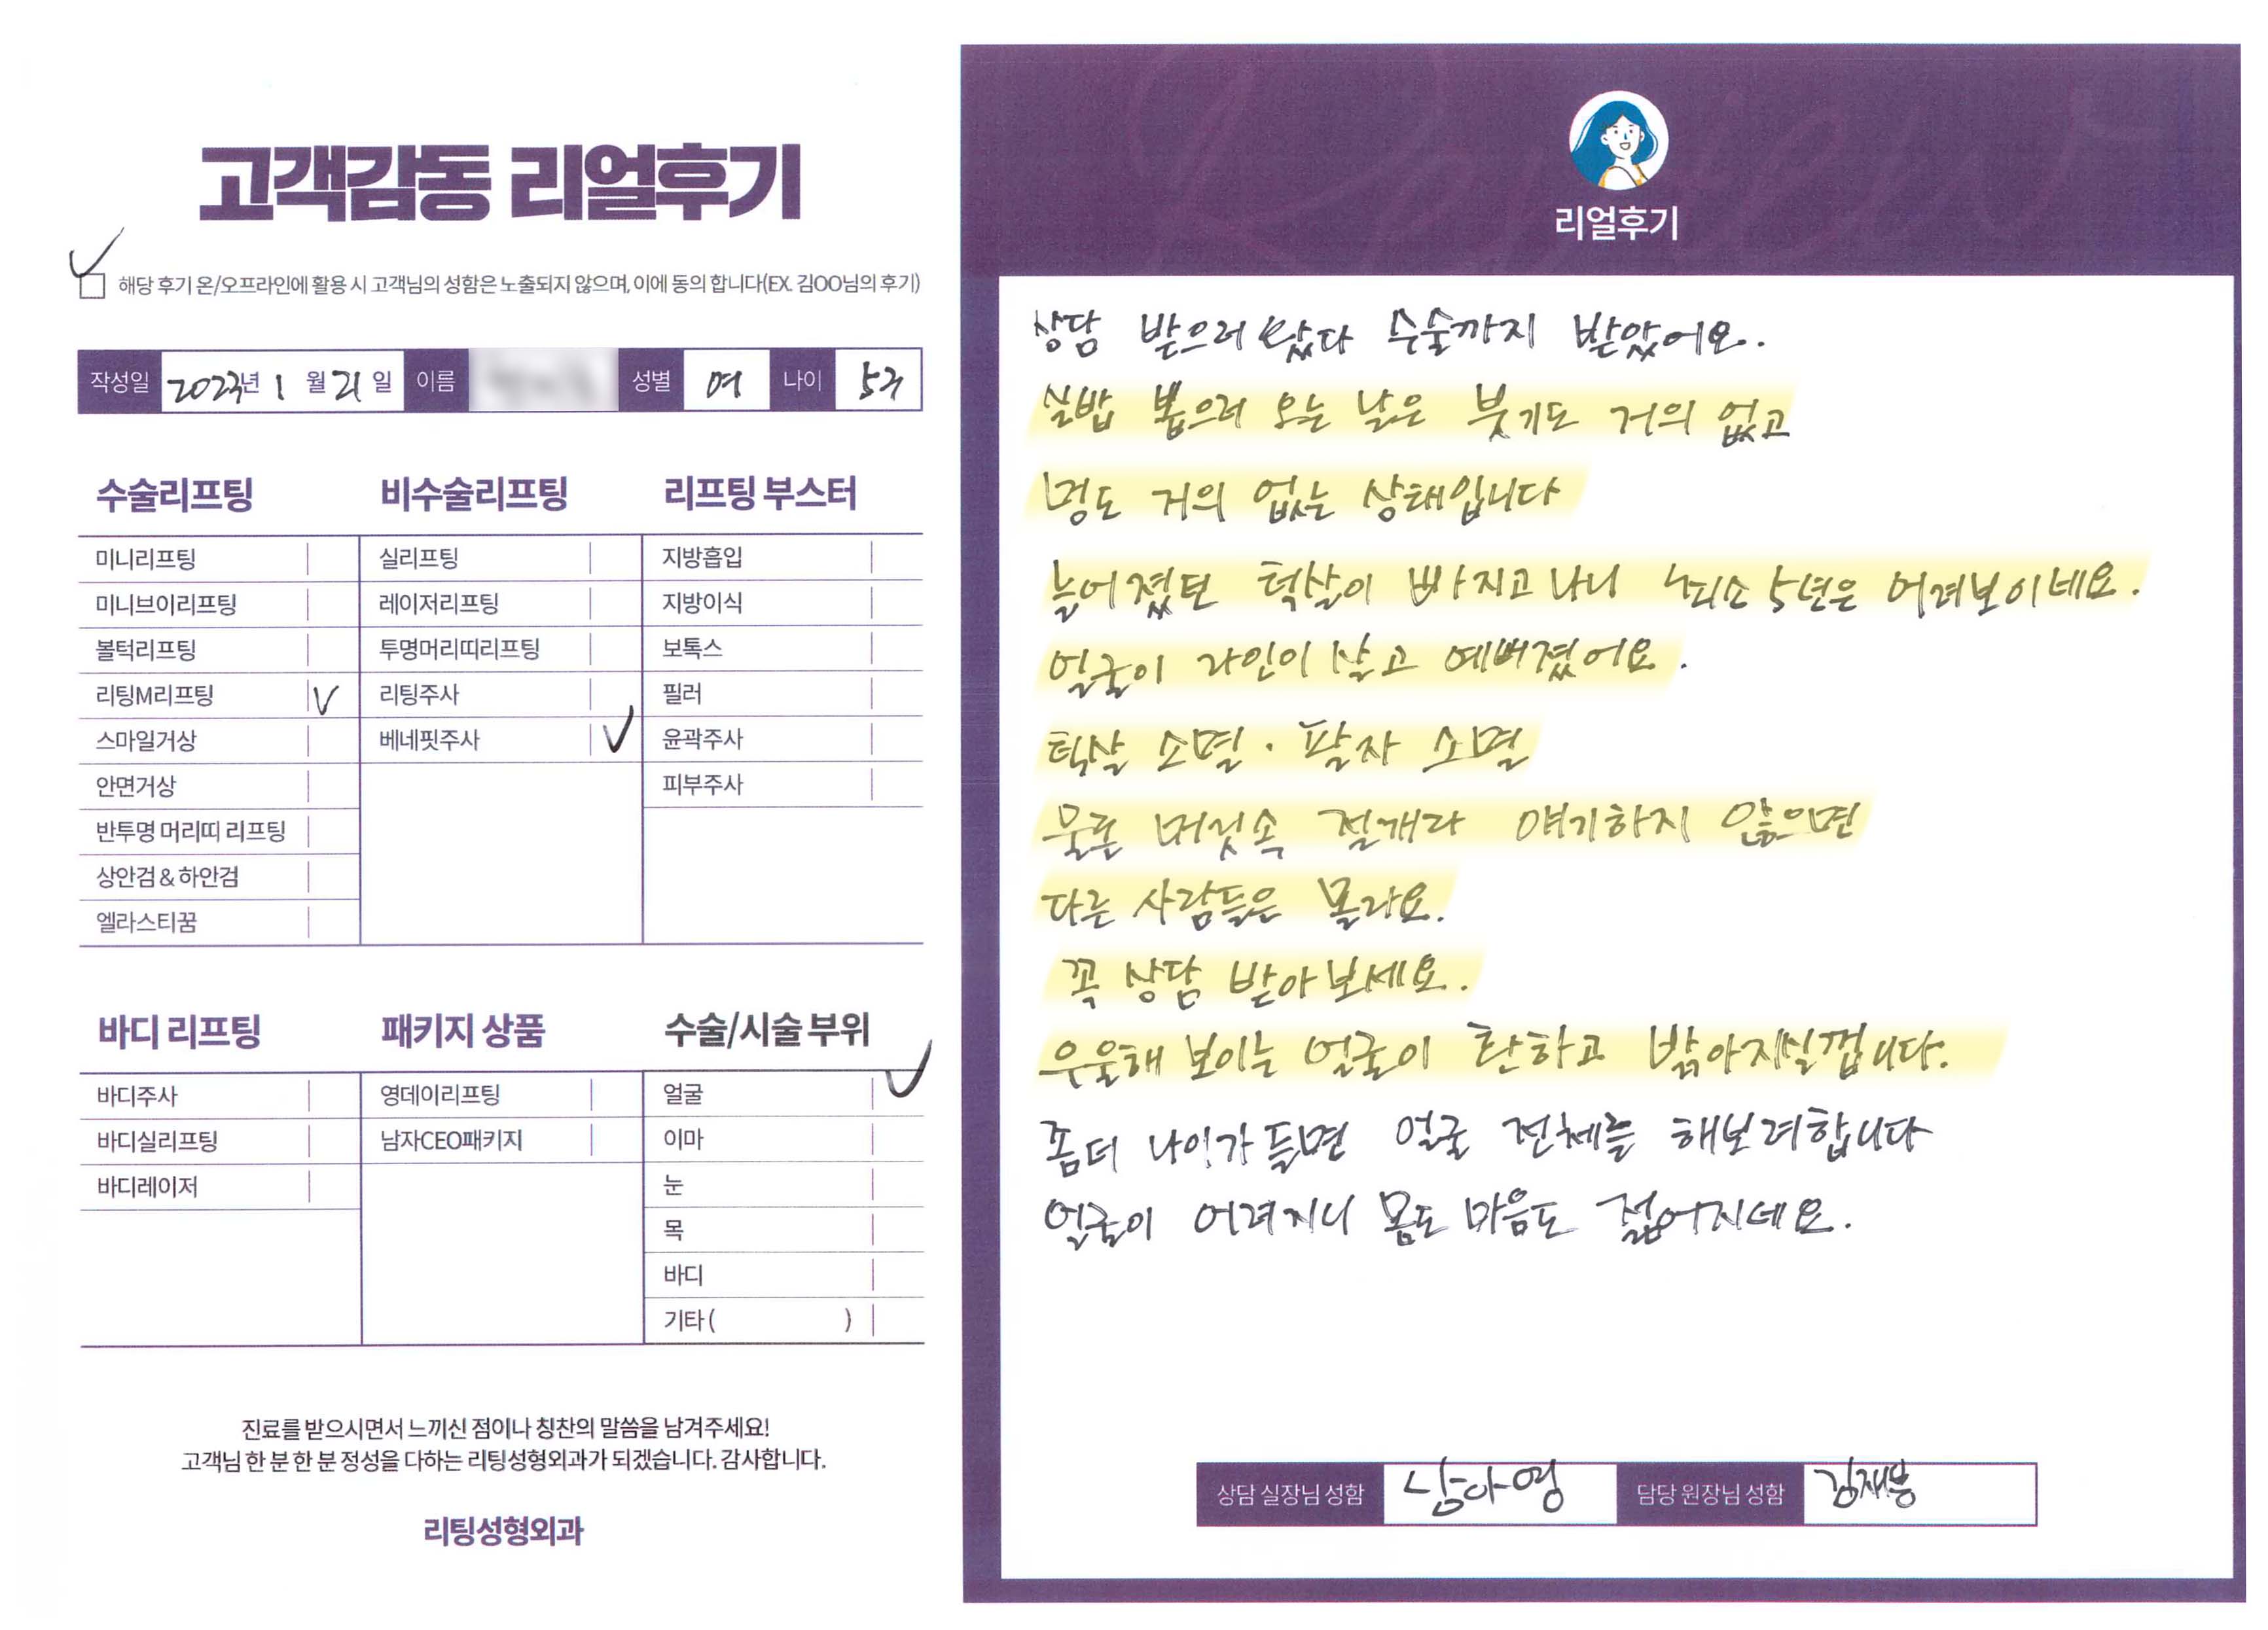 고객감동 리얼후기
해당 후기 온/오프라인에 활용 시 고객님의 성함은 노출되지 않으며, 이에 동의 합니다(EX. 김OO님의 후기)
작성일 2023년 1월 21일 이름 성별 여 나이
수술리프팅
미니리프팅
미니브이리프팅
볼턱리프팅
리팅M리프팅 V
스마일거상
안면거상
반투명 머리띠 리프팅
상안검 & 하안검
엘라스티꿈
비수술리프팅
실리프팅
레이저리프팅
투명머리띠리프팅
리팅주사
베네핏주사 V
리프팅 부스터
지방흡입
지방이식
보톡스
필러
윤곽주사
피부주사
바디 리프팅
바디주사
바디실리프팅
바디레이저
패키지 상품
영데이리프팅
남자CEO패키지
수술/시술 부위
얼굴 V
이마
눈
목
바디
기타 ( )
진료를 받으시면서 느끼신 점이나 칭찬의 말씀을 남겨주세요!
고객님 한 분 한 분 정성을 다하는 리팅성형외과가 되겠습니다. 감사합니다.
리팅성형외과
리얼후기
상담 받으러 왔다 수술까지 받았어요.
실밥 뽑으러 오는 날은 붓기도 거의 없고
멍도 거의 없는 상태입니다
늘어졌던 턱살이 빠지고 나니 최소 5년은 어려보이네요.
얼굴이 라인이 살고 예뻐졌어요.
턱살 소멸 · 팔자 소멸
물론 머릿속 절개라 얘기하지 않으면
다른 사람들은 몰라요.
꼭 상담 받아보세요.
우울해 보이는 얼굴이 환하고 밝아지실껍니다.
좀더 나이가 들면 얼굴 전체를 해보려합니다
얼굴이 어려지니 몸도 마음도 젊어지네요.
상담 실장님 성함 남아영 담당 원장님 성함